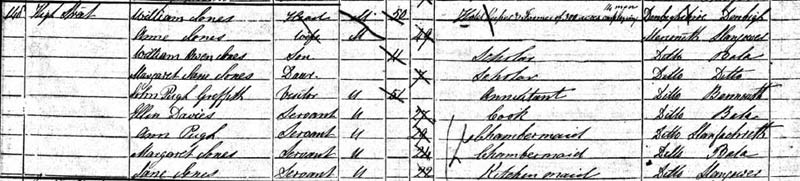 145 High Street William Jones Head M 50 Hotel Keeper & Farmer of 300 acres employing 14 men Denbighshire Denbigh
Anne Jones Wife M 49 Merioneth
William Owen Jones Son 11 Scholar Ditto Bala
Margaret Jane Jones Daur. 7 Scholar Ditto Ditto
John Pugh Griffith Visitor U 51 Annuitant Ditto
Ellen Davies Servant U 27 Cook Ditto Bala
Ann Pugh Servant U Chambermaid Ditto
Margaret Jones Servant U 24 Chambermaid Ditto Bala
Jane Jones Servant U 22 Kitchen maid Ditto